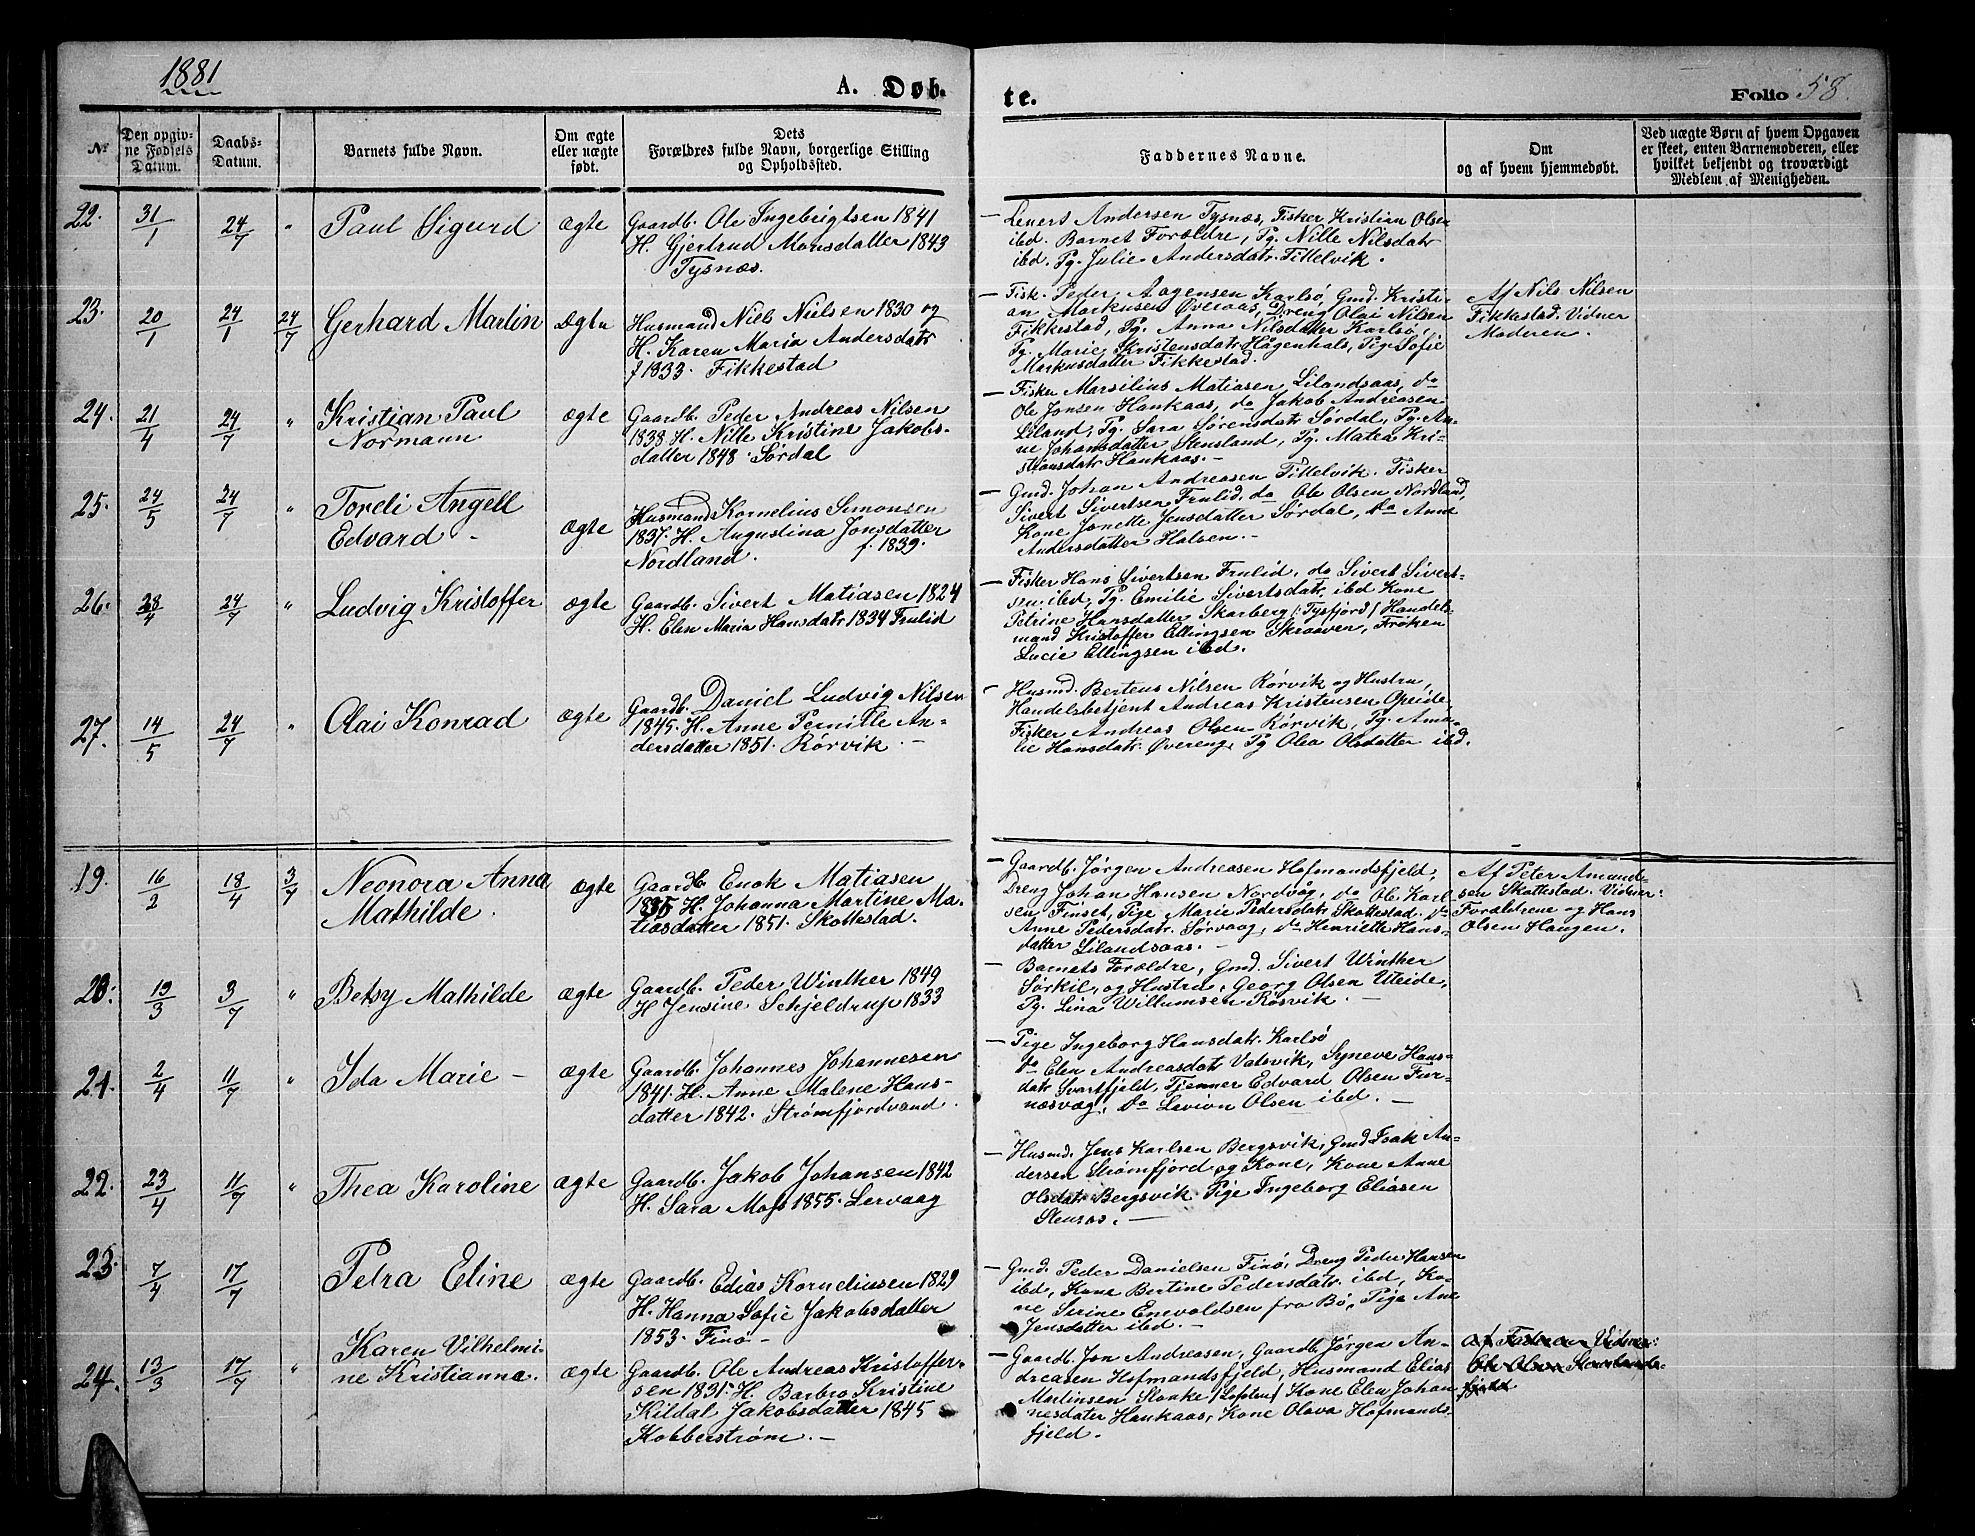 1881
A. Døb-
te.
Folio 58.
№
Den opgiv-
ne Fødsels
Datum.
Daabs-
Datum.
Barnets fulde Navn.
Om ægte
eller uægte
født.
Dets
Forældres fulde Navn, borgerlige Stilling
og Opholdssted.
Faddernes Navne.
Om
og af hvem hjemmedøbt.
Ved uægte Børn af hvem Opgaven
er skeet, enten Barnemoderen, eller
hvilket bekjendt og troværdigt
Medlem af Menigheden.
22. 31/1 24/7 " Paul Sigurd ægte
Gaardb. Ole Ingebrigtsen 1841
H. Gjertrud Monsdatter 1843
Tysnæs.
— Levert Andersen Tysnæs, Fisker Kristian Olsen
ibd. Barnet Forældre, Pg. Nille Nilsdatr
ibd. Pg. Julie Andersdatr. Fittelvik.
23. 20/1 24/1 24/7 Gerhard Martin Ægte
Husmand Niels Nielsen 1830 og
H. Karen Maria Andersdatr
f 1833. Fikkestad
— Fisk. Peder Aagensen Karlsø, Gmd. Kristi-
an Markusen Øveraas, Dreng Olai Nilsen
Fikkestad, Pg. Anna Nilsdatter Karlsø,
Pg. Marie Kristensdatr Hågenhals, Pig. Sofie
Markusdatter Fikkestad.
Af Nils Nilsen
Fikkestad. Vidner
Moderen.
24. 21/4 24/7 " Kristian Paul
Normann ægte
Gaardb. Peder Andreas Nilsen
1838 H. Nille Kristine Jakobs-
datter 1848. Sørdal
— Fisker Marsilius Matiasen Lilandsaas, do
Ole Jonsen Haukaas, do Jakob Andreasen
Liland, Pg. Sara Sørensdatr Sørdal, Pg. An-
ne Johansdatter Stensland, Pg. Matea Kri-
stiansdatr Haukaas. —
25. 24/5 24/7 " Toreli Angell
Edvard - ægte
Husmand Kornelius Simonsen
1837. H. Augustina Jonsdatter
Nordland. f. 1839.
— Gmd. Johan Andreasen Fittelvik. Fisker
Sivert Sivertsen Frulid, do Ole Olsen Nordland,
Kone Jonette Jensdatter Sørdal, do Anne
Andersdatter Halsen. —
26. 28/4 24/7 " Ludvig Kristoffer ægte
Gaardb. Sivert Matiasen 1824
H. Elen Maria Hansdatr 1834 Frulid
— Fisker Hans Sivertsen Frulid, do Sivert Sivert-
sen ibd, Pg. Emilie Sivertsdatr ibd Kone
Petrine Hansdatter Skarberg /: Tysfjord / Handels-
mand Kristoffer Ellingsen Skraaven, Frøken
Lucie Ellingsen ibd.
27. 14/5 24/7 " Olai Konrad ægte
Gaardb. Daniel Ludvig Nilsen
1845. H. Anne Pernille An-
dersdatter 1851. Rørvik. —
— Husmd. Berteus Nilsen Rørvik og Hustru,
Handelsbetjent Andreas Kristensen Opeide,
Fisker Andreas Olsen Rørvik, Pg. Ama-
lie Hansdatr. Øvereng, Pg Olea Olsdatter ibd.
19. 16/2 18/4 3/7 Neonora Anna
Mathilde. ægte
Gaardb. Enok Matiasen
1835 H. Johanna Martine Ma-
tiasdatter 1851. Skottestad.
— Gaardb. Jørgen Andreasen Hofmandsfjeld,
Dreng Johan Hansen Nordvåg, do Ole Karl-
sen Finset, Pige Marie Pedersdatr Skottestad. do
Anne Pedersdatr. Sørvaag, do Henriette Hans-
datter Lilandsaas. —
Af Peter Amund-
sen Skottestad. Vidner:
Forældrene og Hans
Olsen Haugen.
20. 19/3 3/7 " Betsy Mathilde ægte
Gaardb. Peder Winther 1849
H Jensine Schjeldrup 1833
— Barnets Forældre, Gmd. Sivert Winther
Sørkil, og Hustru, Georg Olsen Uteide,
Pg. Lina Willumsen Røsvik. —
21. 2/4 11/7 " Ida Marie — ægte
Gaardb. Johannes Johannesen
1841. H. Anne Malene Hans-
datter 1842. Strømfjordvand.
— Pige Ingeborg Hansdatr. Karlsø
do Elen Andreasdat Valsvik, Syneve Hans-
datr Svartfjeld, Tjenner Edvard Olsen Fur-
næsvåg, do Levion Olsen ibd. —
22. 23/4 11/7 " Thea Karoline ægte
Gaardb. Jakob Johansen 1842
H. Sara Mass 1855. Lervaag
— Husmd. Jens Karlsen Bergsvik, Gmd Isak An-
dersen Strømfjord og Kone, Kone Anne
Olsdatr Bergsvik. Pige Ingeborg Eliasen
Stensas. —
23. 7/4 17/7 Petra Eline ægte
Gaardb. Edias Korneliusen 1829
H. Hanna Sofie Jakobsdatter
1853. Finø —
— Gmd. Peder Danielsen Finø, Dreng Peder Hansen
ibd, Kone Bertine Pedersdatr. ibd, Ko-
ne Serine Enevoldsen fra Bø, Pige Ane
Jensdatter ibd. —
24. 13/3 17/7 " Karen Vilhelmi-
ne Kristianna. ægte
Gaardb. Ole Andreas Kristoffer-
sen 1831. H. Barbro Kristine
Kildal Jakobsdatter 1845
Kobberstrøm. —
— Gaardb. Jon Andreasen, Gaardb. Jørgen An-
dreasen Hofmandsfjeld, Husmand Elias
Martinsen Slaake /: Lofoten / Kone Elen Johan-
nesdater Haukaas, Kone Olava Hofmands-
fjeld.
af Faderen Vidner:
fjeld